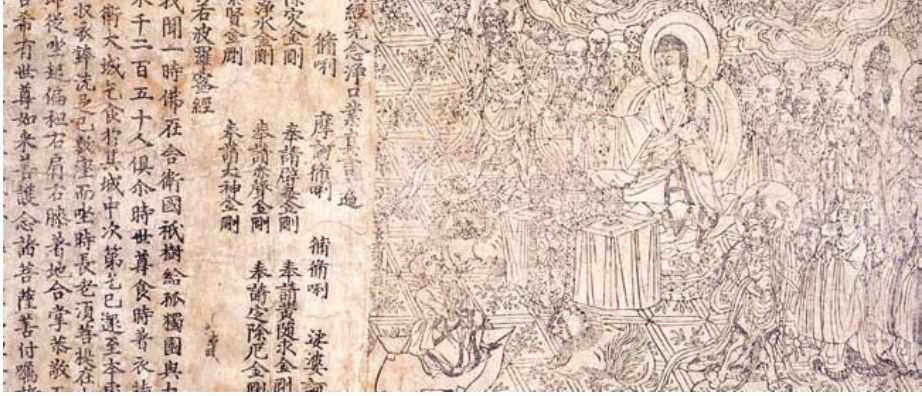 經先念淨口業真言遍
脩唎 摩訶脩唎 脩脩唎 娑婆訶
除灾金剛 奉請辟毒金剛 奉請黃隨求金剛
淨水金剛 奉請赤聲金剛 奉請定除厄金剛
紫賢金剛 奉請大神金剛
若波羅蜜經
我聞一時佛在舍衛國祇樹給孤獨園與大
千二百五十人俱尒時世尊食時著衣持
衛大城乞食於其城中次第乞已還至本處
收衣鉢洗足已敷座而坐時長老須菩提在
即從坐起偏袒右肩右膝著地合掌恭敬
希有世尊如來善護念諸菩薩善付囑